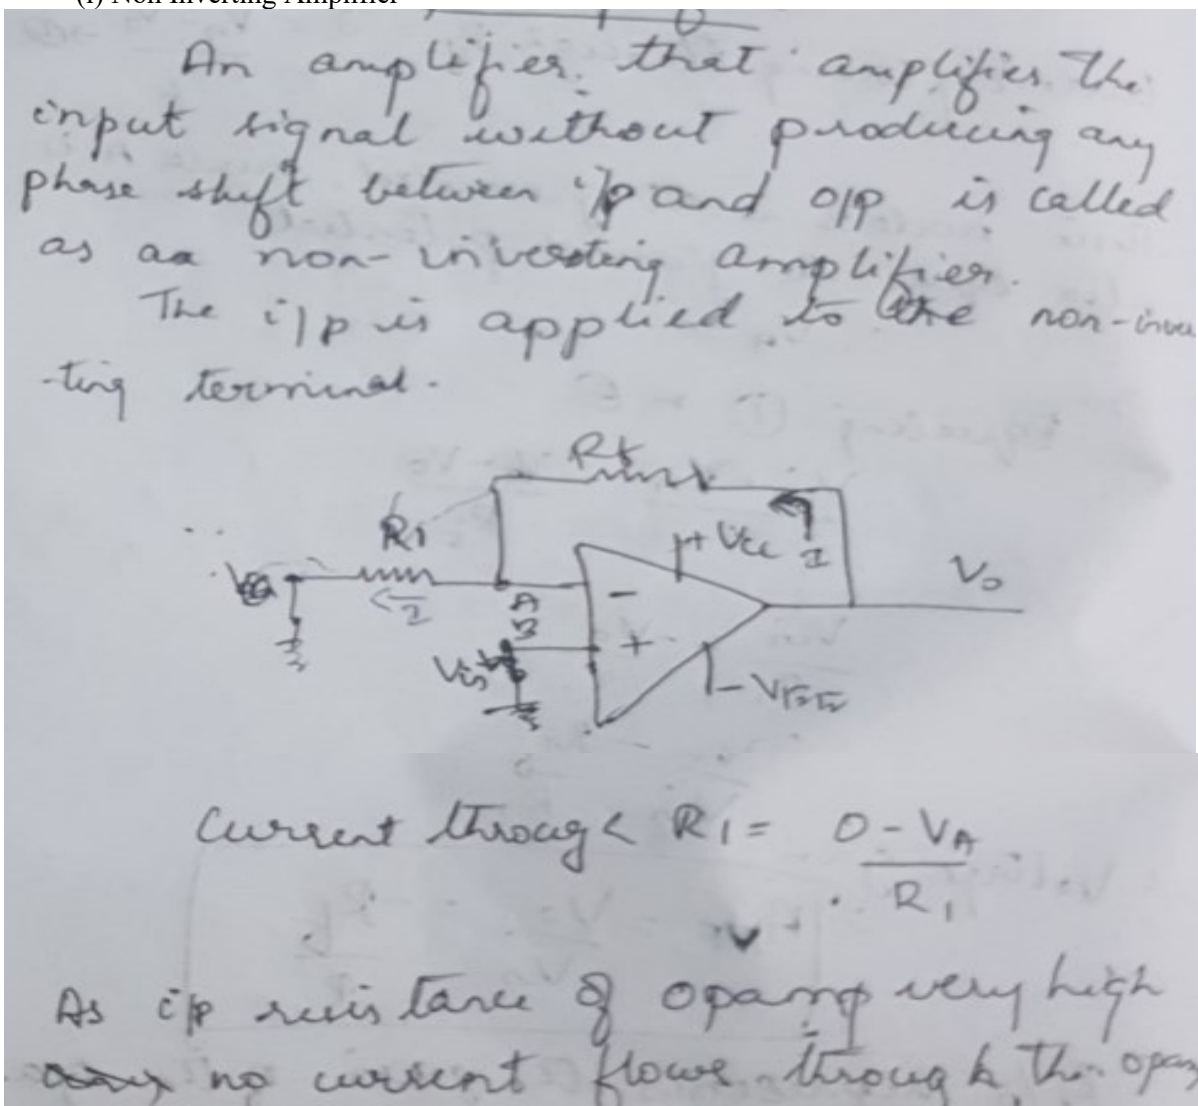 (i) Non Inverting Amplifier
An amplifier. that amplifies the
input signal without producing any
phase shift between i/p and o/p is called
as aa non-inverting amplifier.
The i/p is applied to the non-inver
-ting terminal.
Rf
R1
+ Vcc
I
Vo
I
A
-
B
+
Vin
- VEE
Current through R1 = 0 - VA
R1
As i/p resistance of opamp very high
no current flows through the opam